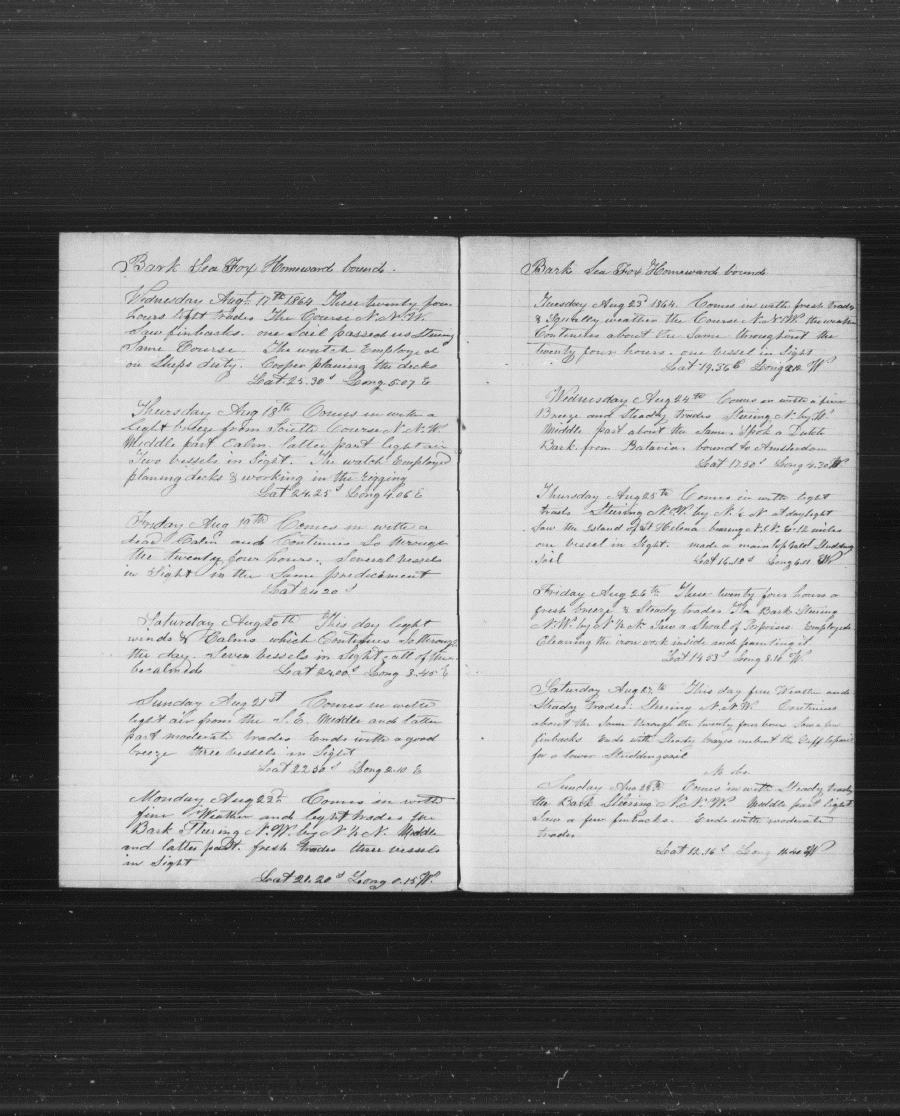 Bark Sea Fox Homeward bound.
Wednesday Augt. 17th 1864 These twenty four
hours light trades The Course N.N.W.
Saw finbacks. one Sail passed us Steering
Same Course The watch Employed
on Ships duty. Cooper planing the decks
Lat 25.30 S Long 5.07 E
Thursday Aug 18th Comes in with a
light breeze from South Course N.N.W.
Middle part Calm. latter part light air
Two vessels in Sight. The watch Employed
planing decks & working in the rigging
Lat 24.25 S Long 4.06 E
Friday Aug 19th Comes in with a
dead Calm and Continues So through
the twenty four hours. Several vessels
in Sight in the Same predicament
Lat 24.20 S
Saturday Aug 20th This day light
winds & Calms which Continues through
the day. Seven vessels in Sight, all of them
becalmed Lat 24.00 S Long 3.45 E
Sunday Aug 21st Comes in with
light air from the S.E. Middle and latter
part moderate trades Ends with a good
breeze three vessels in Sight
Lat 22.50 S Long 2.10 E
Monday Aug 22d Comes in with
fine Weather and light trades the
Bark Steering N.W. by N ½ N. Middle
and latter part. fresh trades three vessels
in Sight
Lat 21.20 S Long 0.15 W.
Bark Sea Fox Homeward bound
Tuesday Aug 23d 1864. Comes in with fresh trades
& Squally weather the Course N.N.W. the weather
Continues about the Same throughout the
twenty four hours. one vessel in Sight
Lat 19.36 Long W
Wednesday Aug 24th Comes in with a fine
Breeze and Steady trades Steering N. by W.
Middle part about the Same. Spoke a Dutch
Bark. from Batavia. bound to Amsterdam
Lat 17.50 S Long 4.30 W.
Thursday Aug 25th Comes in with light
trades Steering N.W. by N. ½ N at daylight
Saw the Island of St Helena bearing N.N.E. 12 miles
one vessel in Sight. made a main top Studding
Sail Lat 16.10 S Long W
Friday Aug 26th These twenty four hours a
fresh breeze & Steady trades The Bark Steering
N.W. by N ½ N Saw a Shoal of Porpoises. Employed
Cleaning the iron work inside and painting it
Lat 14.53 S Long 8.10 W
Saturday Aug 27th This day fine Weather and
Steady Trades. Steering N.N.W. Continues
about the Same through the twenty four hours Saw a few
finbacks. Ends with Steady breezes the Gaff topsail
for a lower Studdingsail
No obs.
Sunday Aug 28th Comes in with Steady trades
the Bark Steering N.N.W. Middle part light
Saw a few finbacks. Ends with moderate
trades
Lat 12.16 S Long 11.40 W